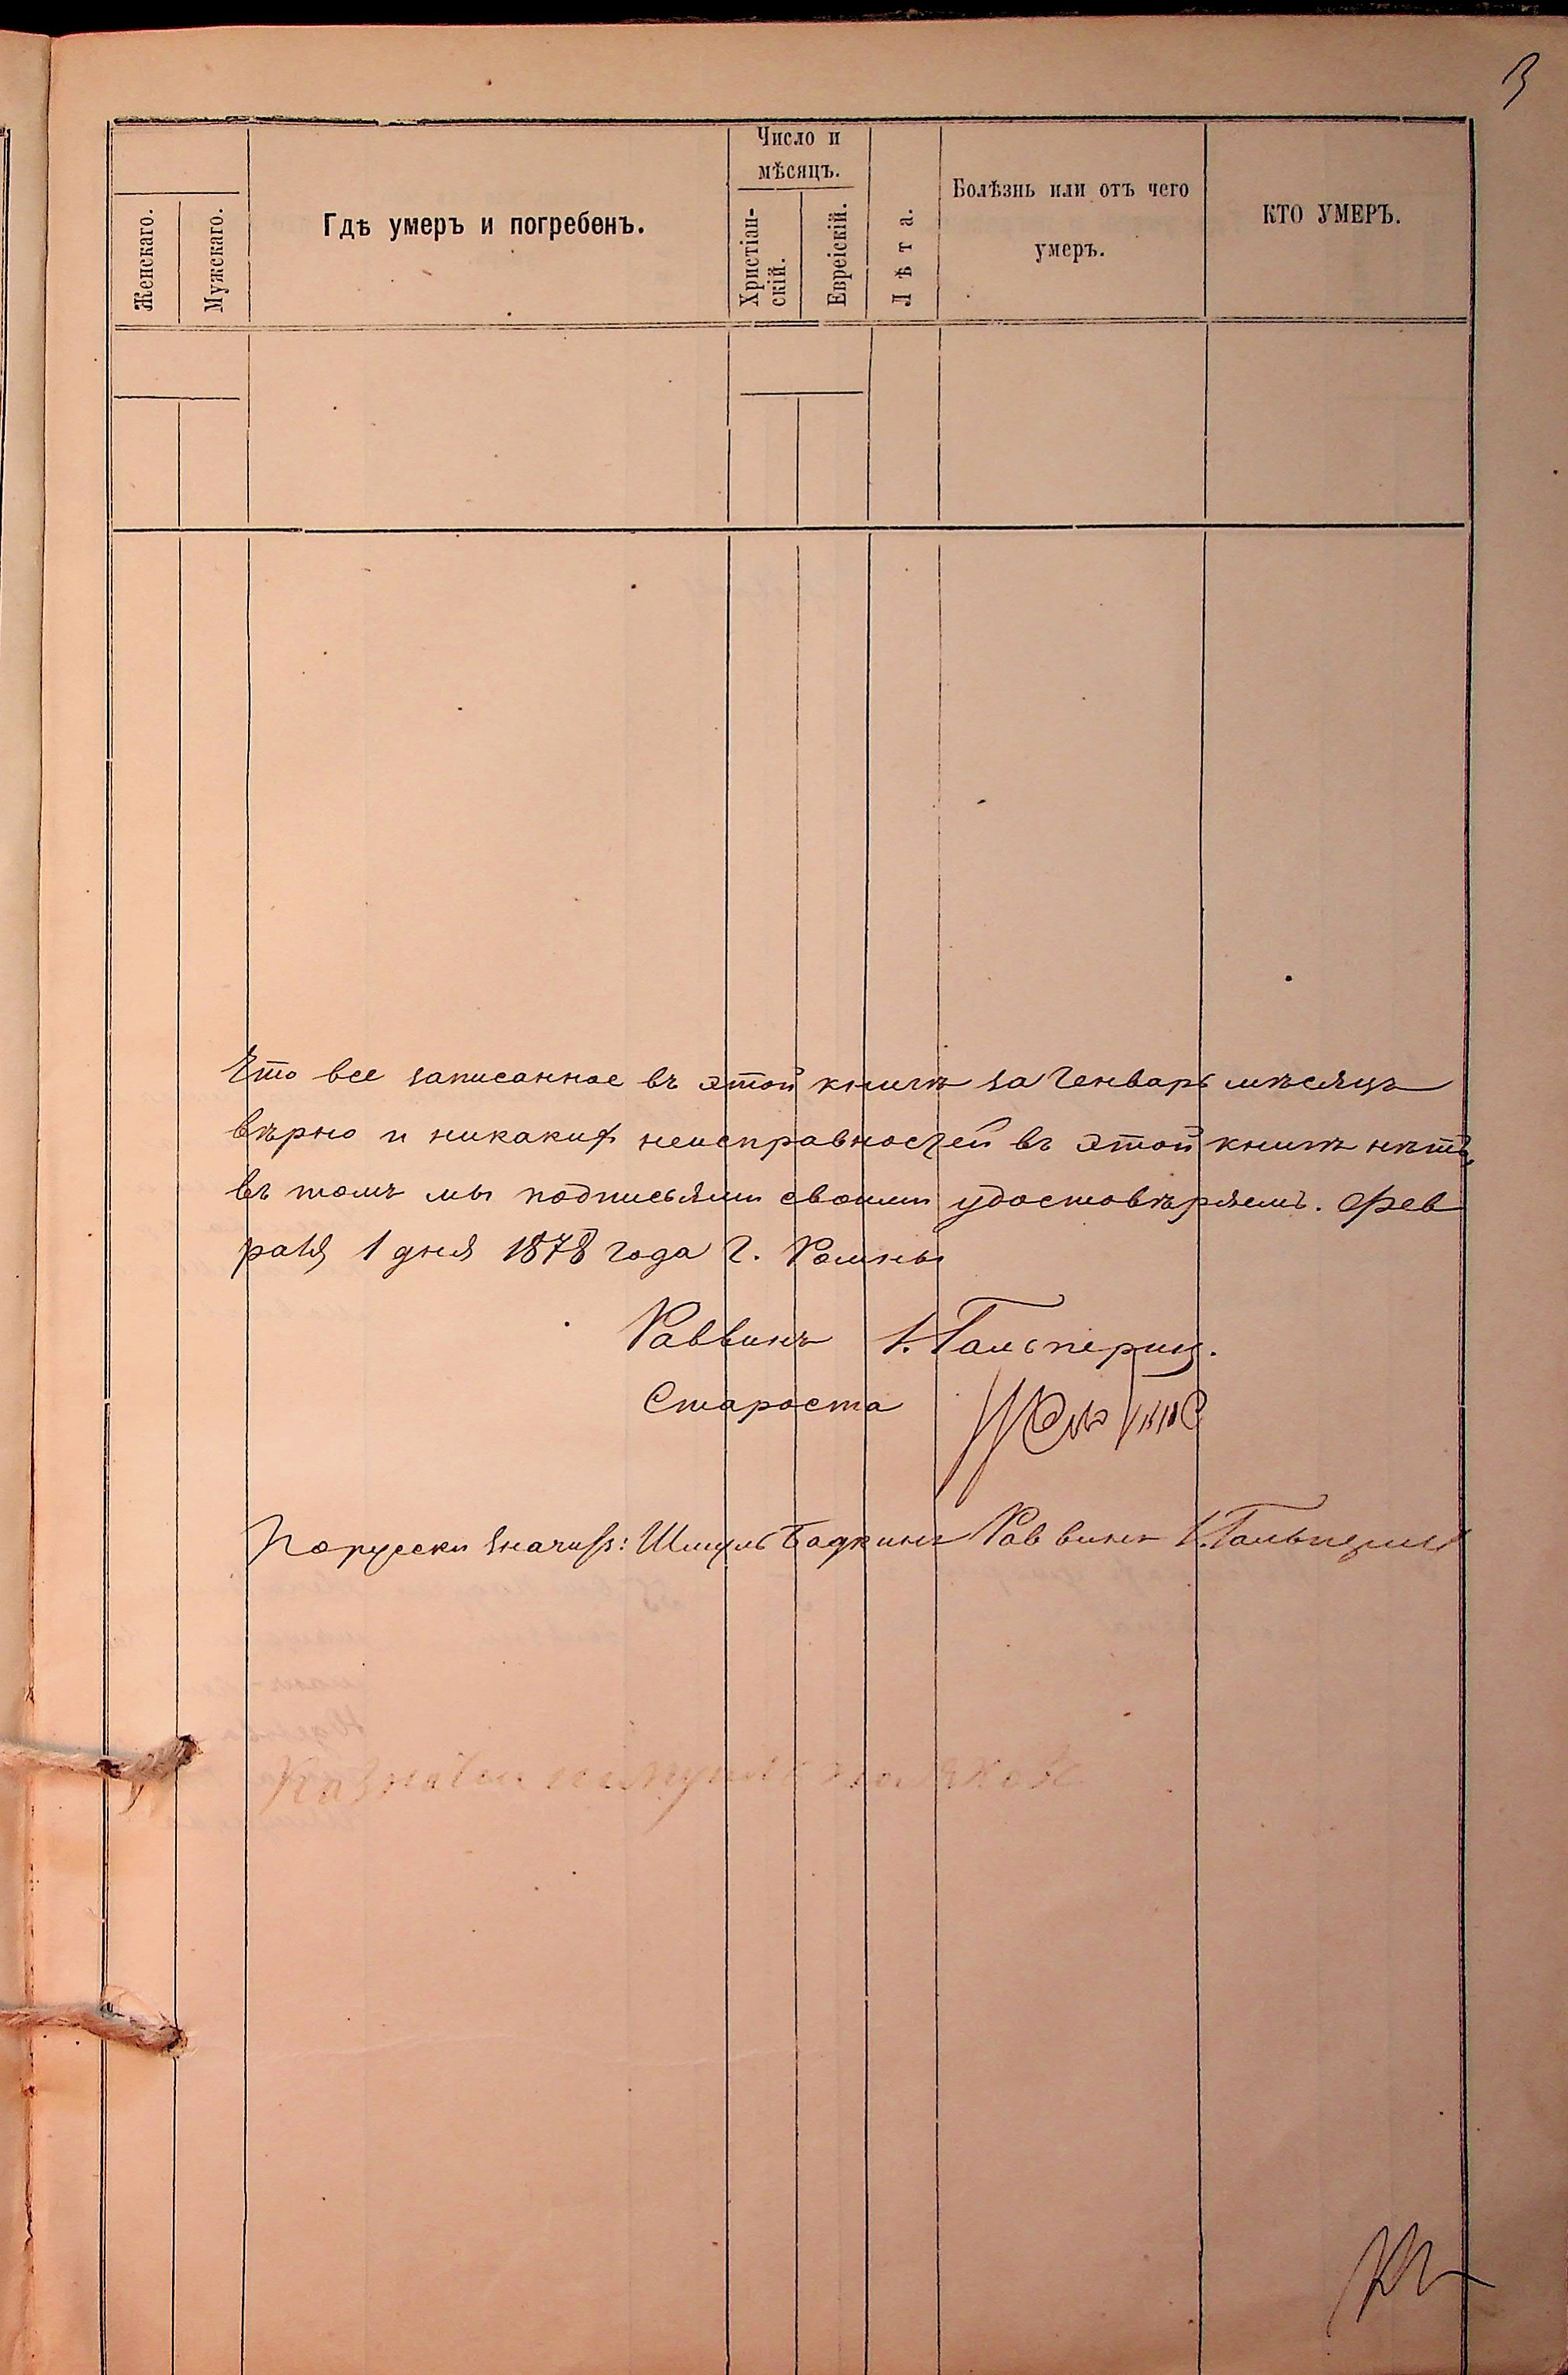 3
Женскаго.
Мужскаго.
Гдѣ умеръ и погребенъ.
Число и
мѣсяцъ.
Христіан-
скій.
Евреіскій.
Лѣта.
Болѣзнь или отъ чего
умеръ.
КТО УМЕРЪ.
Что все записанное въ этой книгѣ за Генварь мѣсяцъ
вѣрно и никакихъ неисправностей въ этой книгѣ нѣтъ,
въ томъ мы подписьями своими удостовѣряемъ. Фев
раля 1 дня 1878 года Г. Ромны
Раввинъ І. Гальперинъ.
Староста
Порусски значитъ: Шмуль Раввинъ І. Гальперинъ